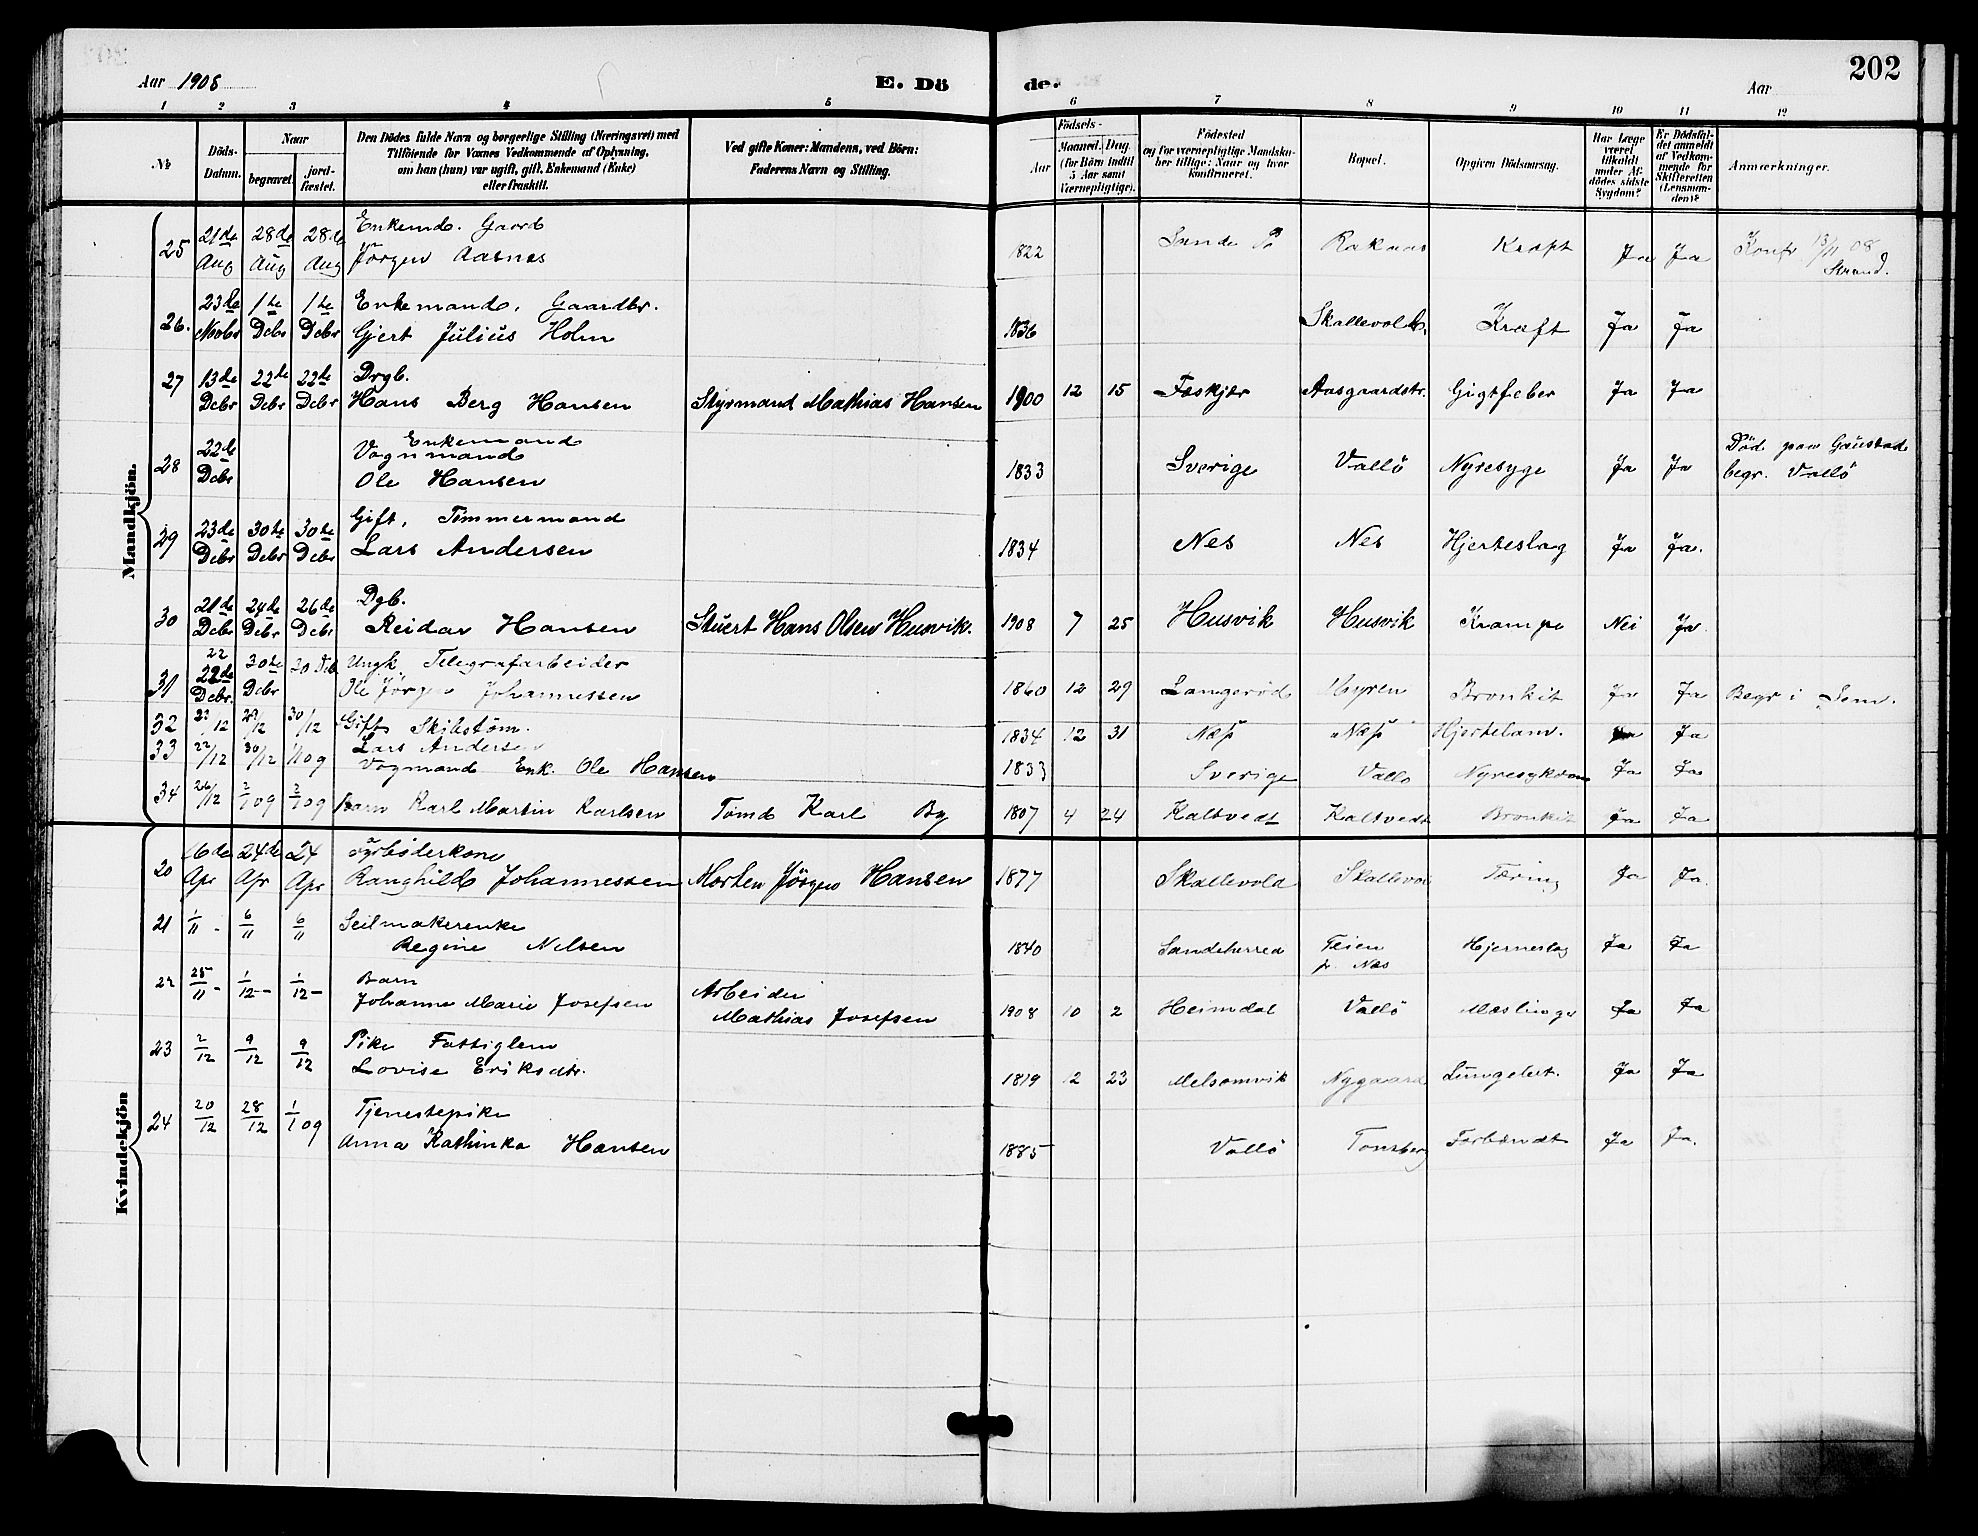 202
Aar 1908 E. Dö de. Aar
1 2 3 4 5 6 7 8 9 10 11 12
№ Döds-Datum. Naar begravet. jord-fæstet. Den Dödes fulde Navn og borgerlige Stilling (Næringsvei) med Tilföiende for Voxnes Vedkommende af Oplysning, om han (hun) var ugift, gift, Enkemand (Enke) eller fraskilt. Ved gifte Koner: Mandens, ved Börn: Faderens Navn og Stilling. Födsels- Aar Maaned. Dag. (for Börn indtil 5 Aar samt Værnepligtige). Födested og for værnepligtige Mandskaber tillige: Naar og hvor konfirmeret. Bopæl. Opgiven Dödsaarsag. Har Læge været tilkaldt under Afdödes sidste Sygdom? Er Dödsfaldet anmeldt af Vedkommende for Skifteretten (Lensmanden)? Anmærkninger.
Mandkjön.
25 21de Aug 28de Aug 28de Aug Enkemd. Gaard
Jörgen Aasnes 1822 Sande Kræft Ja Ja Konfr 13/11 08
Strand.
26. 23de Novbr 1te Debr 1te Debr Enkemand, Gaardbr.
Gjert Julius Holm 1836 Skallevold Kræft Ja Ja
27 13de Debr 22de Debr 22de Debr Drgb.
Hans Berg Hansen Styrmand Mathias Hansen 1900 12 15 Feskjær Aasgaardstr. Gigtfeber Ja Ja
28 22de Debr Enkemand
Vognmand
Ole Hansen 1833 Sverige Vallö Nyresyge Ja Ja Död paa Gaustad
begr. Vallö
29 23de Debr 30te Debr 30te Debr Gift, Tömmermand
Lars Andersen 1834 Nes Nes Hjerteslag Ja Ja.
30 21de Debr 24de Debr 26de Debr Dgb.
Reidar Hansen Stuert Hans Olsen Husvik. 1908 7 25 Husvik Husvik Krampe Nei Ja.
31 22 22de Debr. 30te Debr 30 Deb Ungk Telegrafarbeider
Ole Jörgen Johannessen 1860 12 29 Langeröd Myren Bronkit Ja Ja Begr i Sem.
32 /12 29/12 30/12 Gift Skibstöm.
Lars Andersen 1834 12 31 Næs Næs Hjertelam. Ja
33 22/12 30/12 1/1 09 Vogmand Enk. Ole Hansen 1833 Sverige Vallö Nyresykdom Ja Ja
34 26/12 2/1 09 2/1 09 Barn Karl Martin Karlsen Tømd Karl By 1807 4 24 Kaltvedt Kaltvedt Bronkit Ja Ja
Kvindekjön
20 16de Apr 24de Apr 24 Apr Fyrböderkone
Ranghild Johannessen Morten Jörgen Hansen 1877 Skallevold Skallevol Tæring Ja Ja.
21 1/11 - 6/11 6/11 Seilmakerenke
Regine Nelsen 1840 Sandeherred Teien
p. Næs Hjerneslag Ja Ja
22 25/11 - 1/12 - 1/12 - Barn
Johanne Marie Josefsen Arbeider
Mathias Josefsen 1908 10 2 Heimdal Vallö Mæslinger Ja Ja
23 2/12 9/12 9/12 Pike Fattiglem
Lovise Eriksdtr. 1819 12 23 Melsomvik Nygaard Lungebet. Ja Ja
24 20/12 28/12 1/1 09 Tjenestepike
Anna Kathinka Hansen 1885 Vallö Tonsberg Forbrændt Ja Ja.